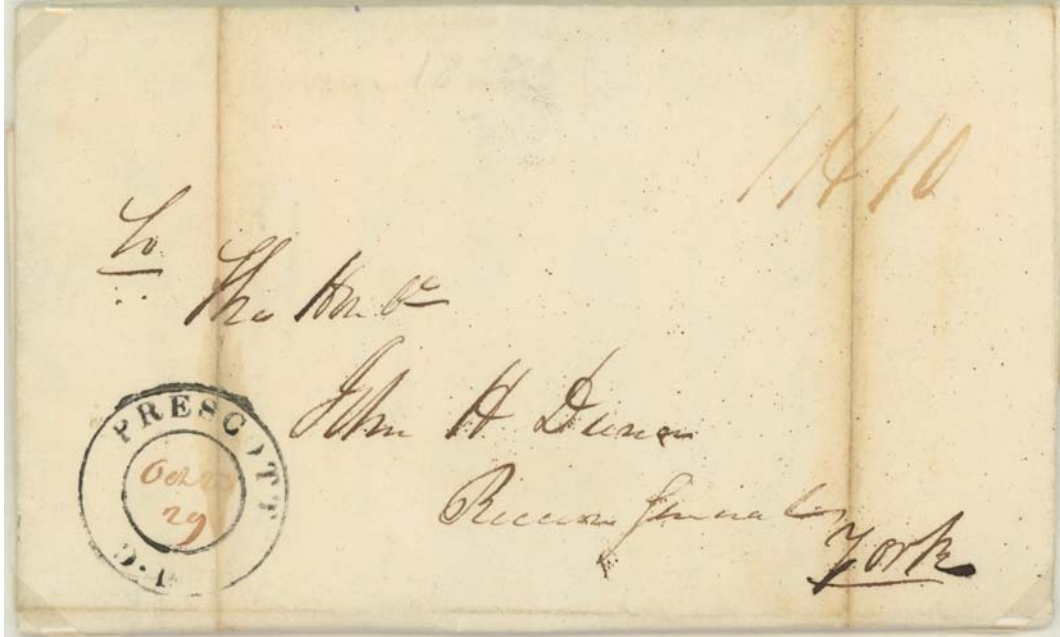 1/4 10
To
The Honble
John H Dunn
Receiver General
York
PRESCOTT
Oct 23
29
U.C